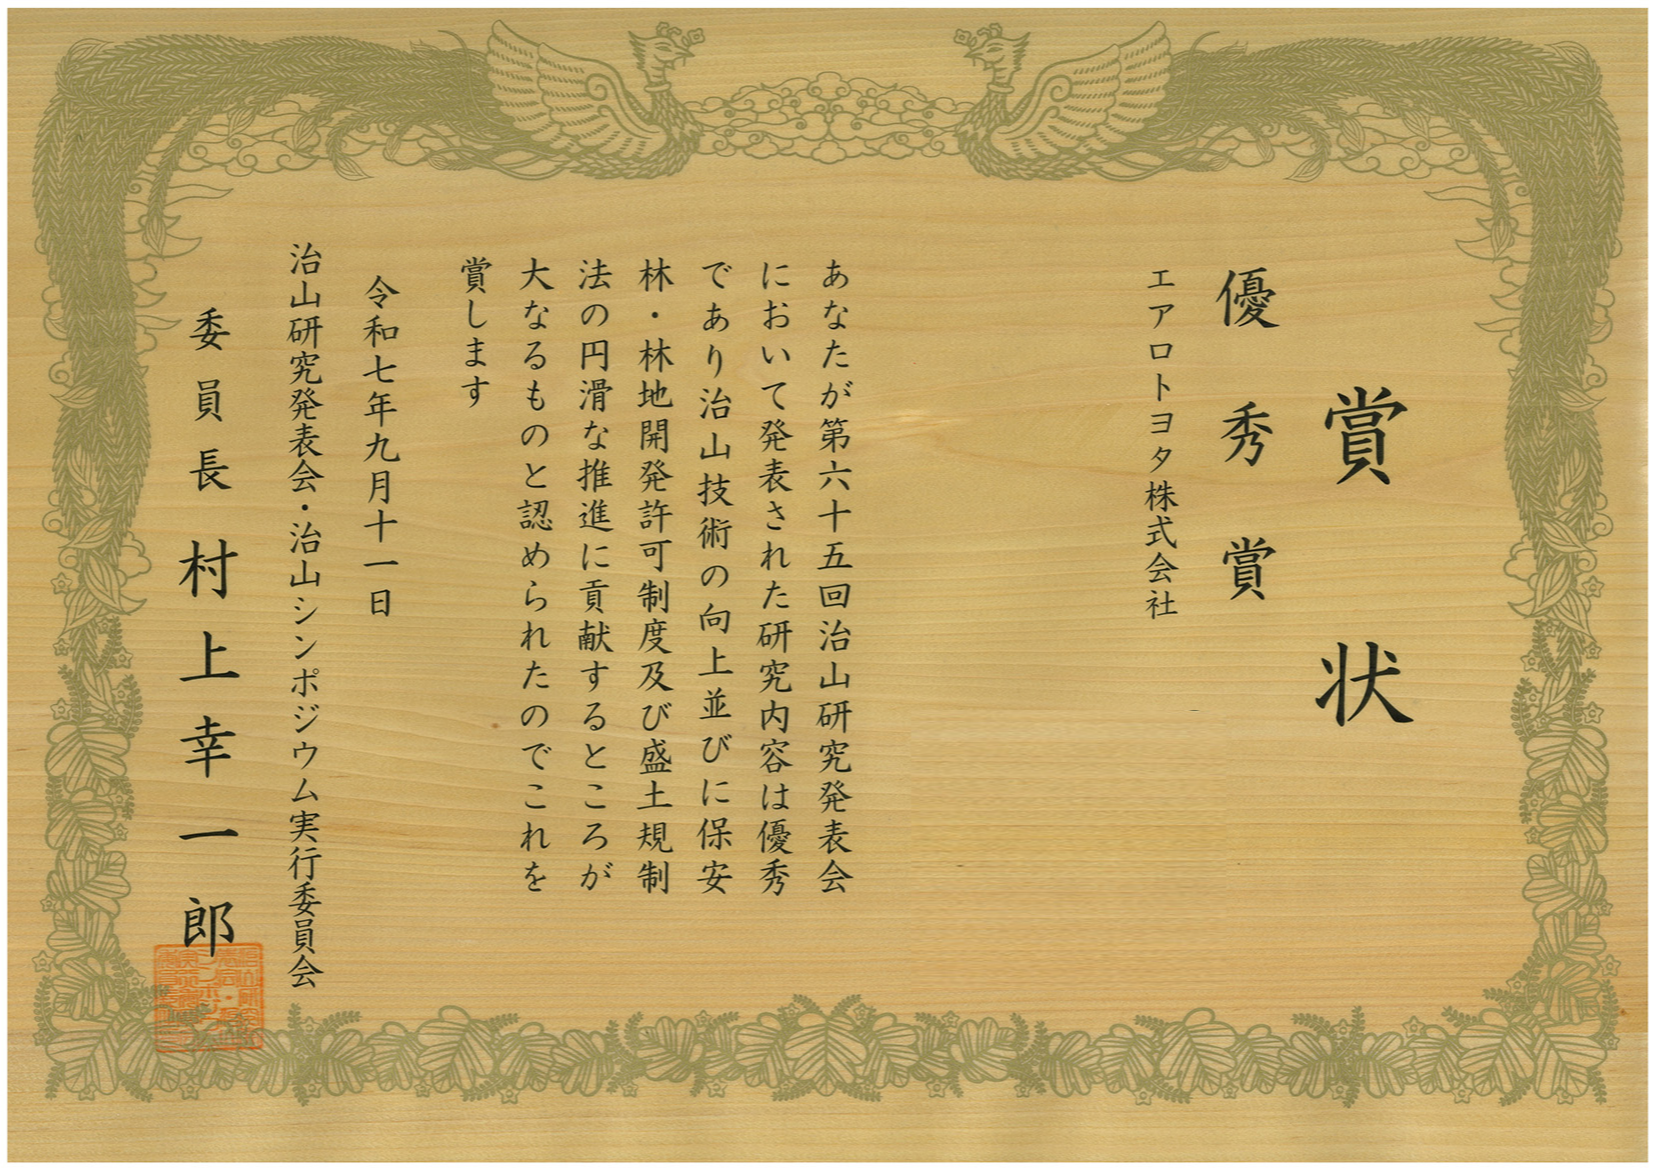 賞状
優秀賞
エアロトヨタ株式会社
あなたが第六十五回治山研究発表会
において発表された研究内容は優秀
であり治山技術の向上並びに保安
林・林地開発許可制度及び盛土規制
法の円滑な推進に貢献するところが
大なるものと認められたのでこれを
賞します
令和七年九月十一日
治山研究発表会・治山シンポジウム実行委員会
委員長 村上幸一郎